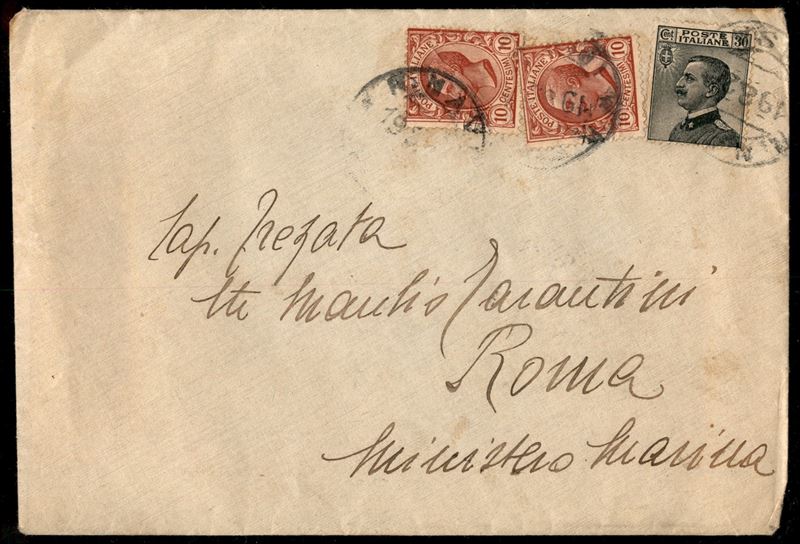 10 10
POSTE ITALIANE
CENTESIMI
10 10
POSTE ITALIANE
CENTESIMI
Cent. 30
POSTE
ITALIANE
Cap. Fregata
Manlio Tarantini
Roma
Ministero Marina